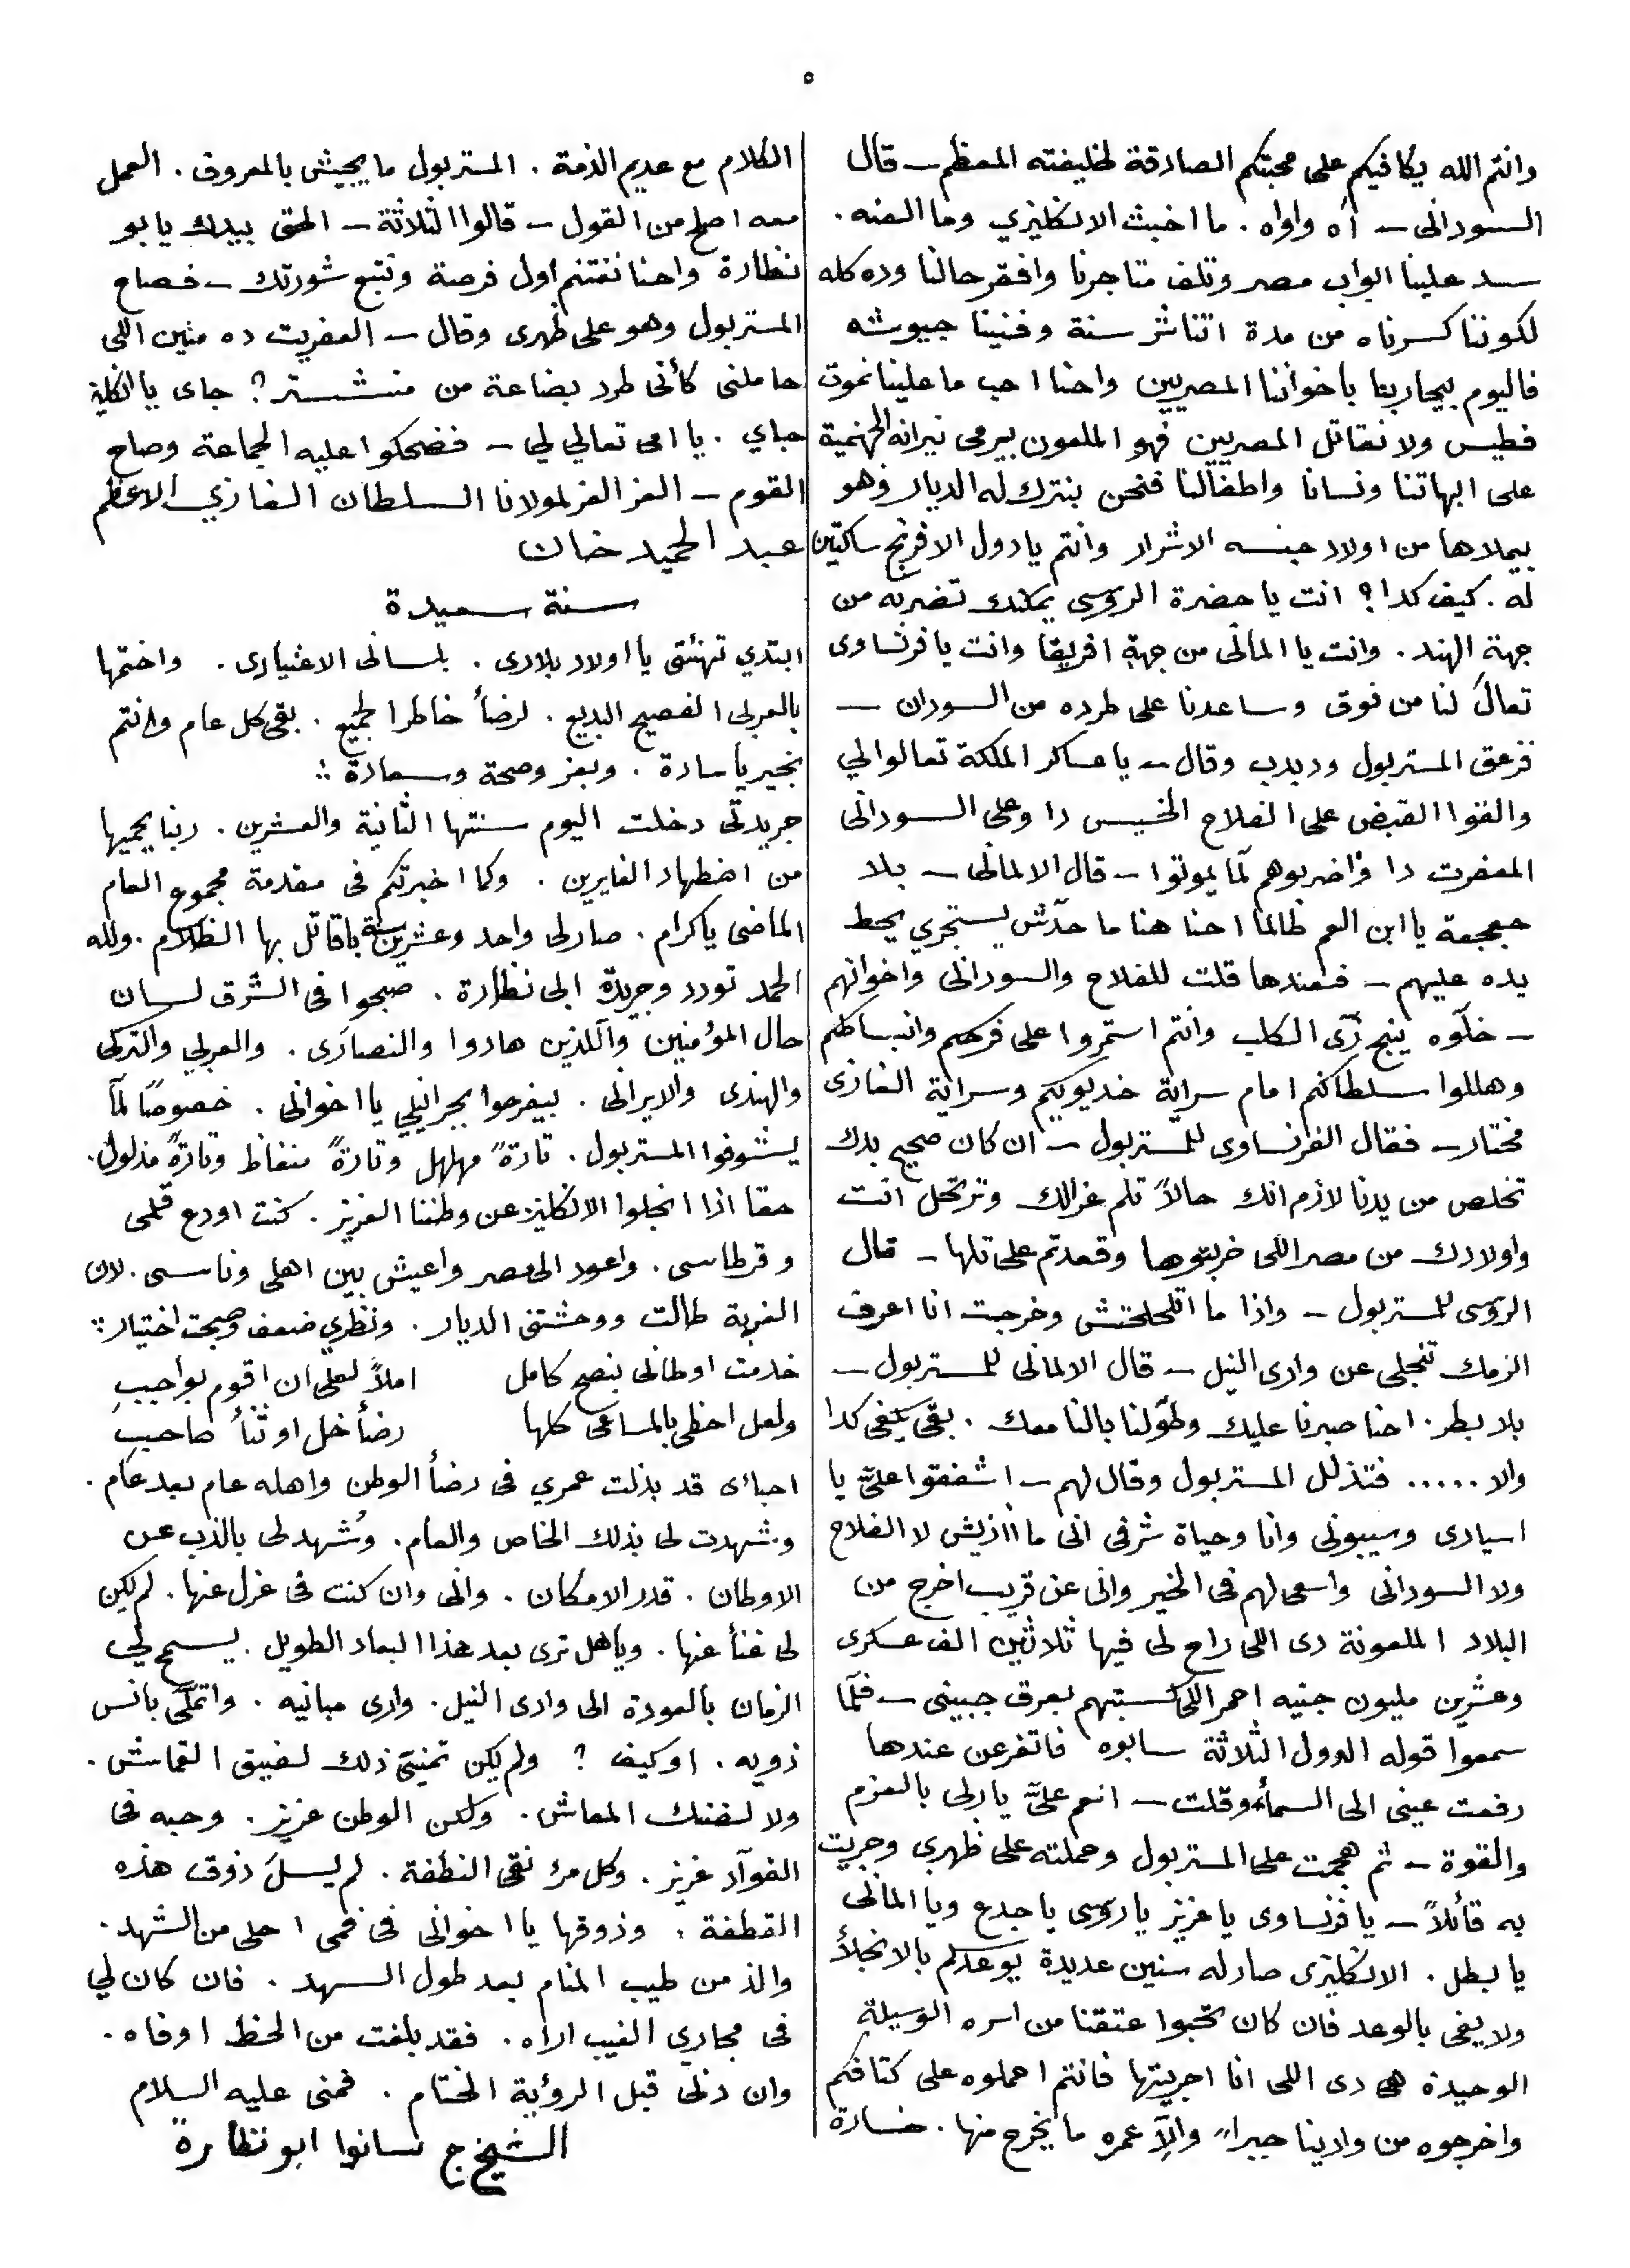 ٥
وانتم الله يكافيكم على محبتكم الصادقة لخليفته المعظم – قال
السودانى – آه واواه . ما اخبث الانكليزي وما العنه .
سد علينا ابواب مصر وتلف متاجرنا وافقر حالنا وده كله
لكوننا كسرناه من مدة اتناشر سنة وفنينا جيوشه
فاليوم بيحاربنا باخواننا المصريين واحنا احب ما علينا نموت
فطيس ولا نقاتل المصريين فهو الملعون بيرمى نيرانه الجهنمية
على ابهاتنا ونسانا واطفالنا فنحن بنترك له الديار وهو
بيملاها من اولاد جنسه الاشرار وانتم يا دول الافرنج ساكتين
له . كيف كدا ؟ انت يا حضرة الروسى يمكنك تضربه من
جهة الهند . وانت يا المانى من جهة افريقا وانت يا فرنساوى
تعالَ لنا من فوق وساعدنا على طرده من السودان –
فزعق المستربول ودبدب وقال – يا عساكر الملكة تعالوا لي
والقوا القبض على الفلاح الخسيس دا وعلى السودانى
المعفرت دا واضربوهم لمّا يموتوا – قال الالمانى – بلا
جعجعة يا ابن العم طالما احنا هنا ما حدّش يستجري يحط
يده عليهم – فعندها قلت للفلاح والسودانى واخوانهم
– خلّوه ينبح زّى الكلب وانتم استمروا على فرحكم وانبساطكم
وهللوا لسلطانكم امام سراية خديويكم وسراية الغازى
مختار – فقال الفرنساوى للمستربول – ان كان صحيح بدك
تخلص من يدنا لازم انك حالاً تلم عزالك وترتحل انت
واولادك من مصر اللى خربتوها وقعدتم على تلها – قال
الروسى للمستربول – واذا ما اتلحلحتش وخرجت انا اعرف
الزمك تنجلى عن وادى النيل – قال الالمانى للمستربول –
بلا بطر . احنا صبرنا عليك وطوّلنا بالنا معك . بقى يكفى كدا
والا ..... فتذلل المستربول وقال لهم – اشفقوا علىَّ يا
اسيادى وسيبونى وانا وحياة شرفى انى ما اازيش لا الفلاح
ولا السودانى واسعى لهم فى الخير وانى عن قريب اخرج من
البلاد الملعونة دى اللى راح لى فيها ثلاثين الف عسكرى
وعشرين مليون جنيه احمر اللى كسبتهم بعرق جبينى – فلمّا
سمعوا قوله الدول الثلاثة سابوه فاتفرعن عندها
رفعت عينى الى السمأ وقلت – انعم علىَّ يا ربى بالعزم
والقوة – ثم هجمت على المستربول وحملته على ظهري وجريت
به قأئلاً – يا فرنساوى يا عزيز يا روسى يا جدع ويا المانى
يا بطل . الانكليزى صار له سنين عديدة يوعدكم بالانجلأ
ولا يفى بالوعد فان كان تحبوا عتقنا من اسره الوسيلة
الوحيدة هى دى اللى انا اجريتها فانتم احملوه على كتافكم
واخرجوه من وادينا جبراً والاّ عمره ما يخرج منها . خسارة
الكلام مع عديم الذمة . المستربول ما يجيش بالمعروف . العمل
معه اصلح من القول – قالوا الثلاثة – الحق بيدك يا بو
نظارة واحنا نغتنم اول فرصة ونتبع شورتك – فصاح
المستربول وهو على ظهرى وقال – العفريت ده منين اللى
حاملنى كأنى طرد بضاعة من منشستر ؟ جاى يا انكليز
جاي . يا امى تعالي لي – فضحكوا عليه الجماعة وصاح
القوم – العز العز لمولانا السلطان الغازي الاعظم
عبد الحميد خان
سنة سعيدة
ابتدي تهنئتى يا اولاد بلادى . بلسانى الاعتيادى . واختمها
بالعربى الفصيح البديع . لرضأ خاطر الجميع . بقى كل عام وانتم
بخير يا سادة . وبعز وصحة وسعادة :
جريدتى دخلت اليوم سنتها الثانية والعشرين . ربنا يحميها
من اضطهاد الغايرين . وكما اخبرتكم فى مقدمة مجموع العام
الماضى يا كرام . صار لى واحد وعشرين سنة باقاتل بها الظلام . ولله
الحمد تودد وجريدة ابى نظارة . صبحوا فى الشرق لسان
حال المؤمنين والّلذين هادوا والنصارَى . والعربي والتركى
والهندى والايرانى . بيفرحوا بجرانيلي يا اخوانى . خصوصًا لمّا
يشوفوا المستربول . تارةً مهلهل وتارةً منغاظ وتارةً مذلول .
حقا اذا انجلوا الانكليز عن وطننا العزيز . كنت اودع قلمى
وقرطاسى . واعود الى مصر واعيش بين اهلى وناسى . لان
الغربة طالت ووحشتنى الديار . ونظري ضعف وصبحت اختيار :
خدمت اوطانى بنصح كامل املاً لعلى ان اقوم بواجبِ
ولعل احظى بالمساعى كلها رضأ خل او ثنأ صاحبِ
احبائى قد بذلت عمري فى رضأ الوطن واهله عام بعد عام .
وشهدت لى بذلك الخاص والعام . وشهد لى بالذب عن
الاوطان . قدر الامكان . وانى وان كنت فى عزل عنها . لم يكن
لى غنأ عنها . ويا هل ترى بعد هذا البعاد الطويل . يسمح لي
الزمان بالعودة الى وادى النيل . وارى مبانيه . واتملَّى بانس
ذويه . او كيف ؟ ولم يكن تمنيَّ ذلك لضيق القماش .
ولا لضنك المعاش . ولكن الوطن عزيز . وحبه فى
الفوآد غريز . وكل مرء نقى النطفة . لم يسلَ ذوق هذه
القطفة . وذوقها يا اخوانى فى فمى احلى من الشهد .
والذ من طيب المنام بعد طول السهد . فان كان لي
فى مجاري الغيب اراه . فقد بلغت من الحظ اوفاه .
وان دنى قبل الرؤية الختام . فمنى عليه السلام
الشيخ ج سانوا ابو نظارة